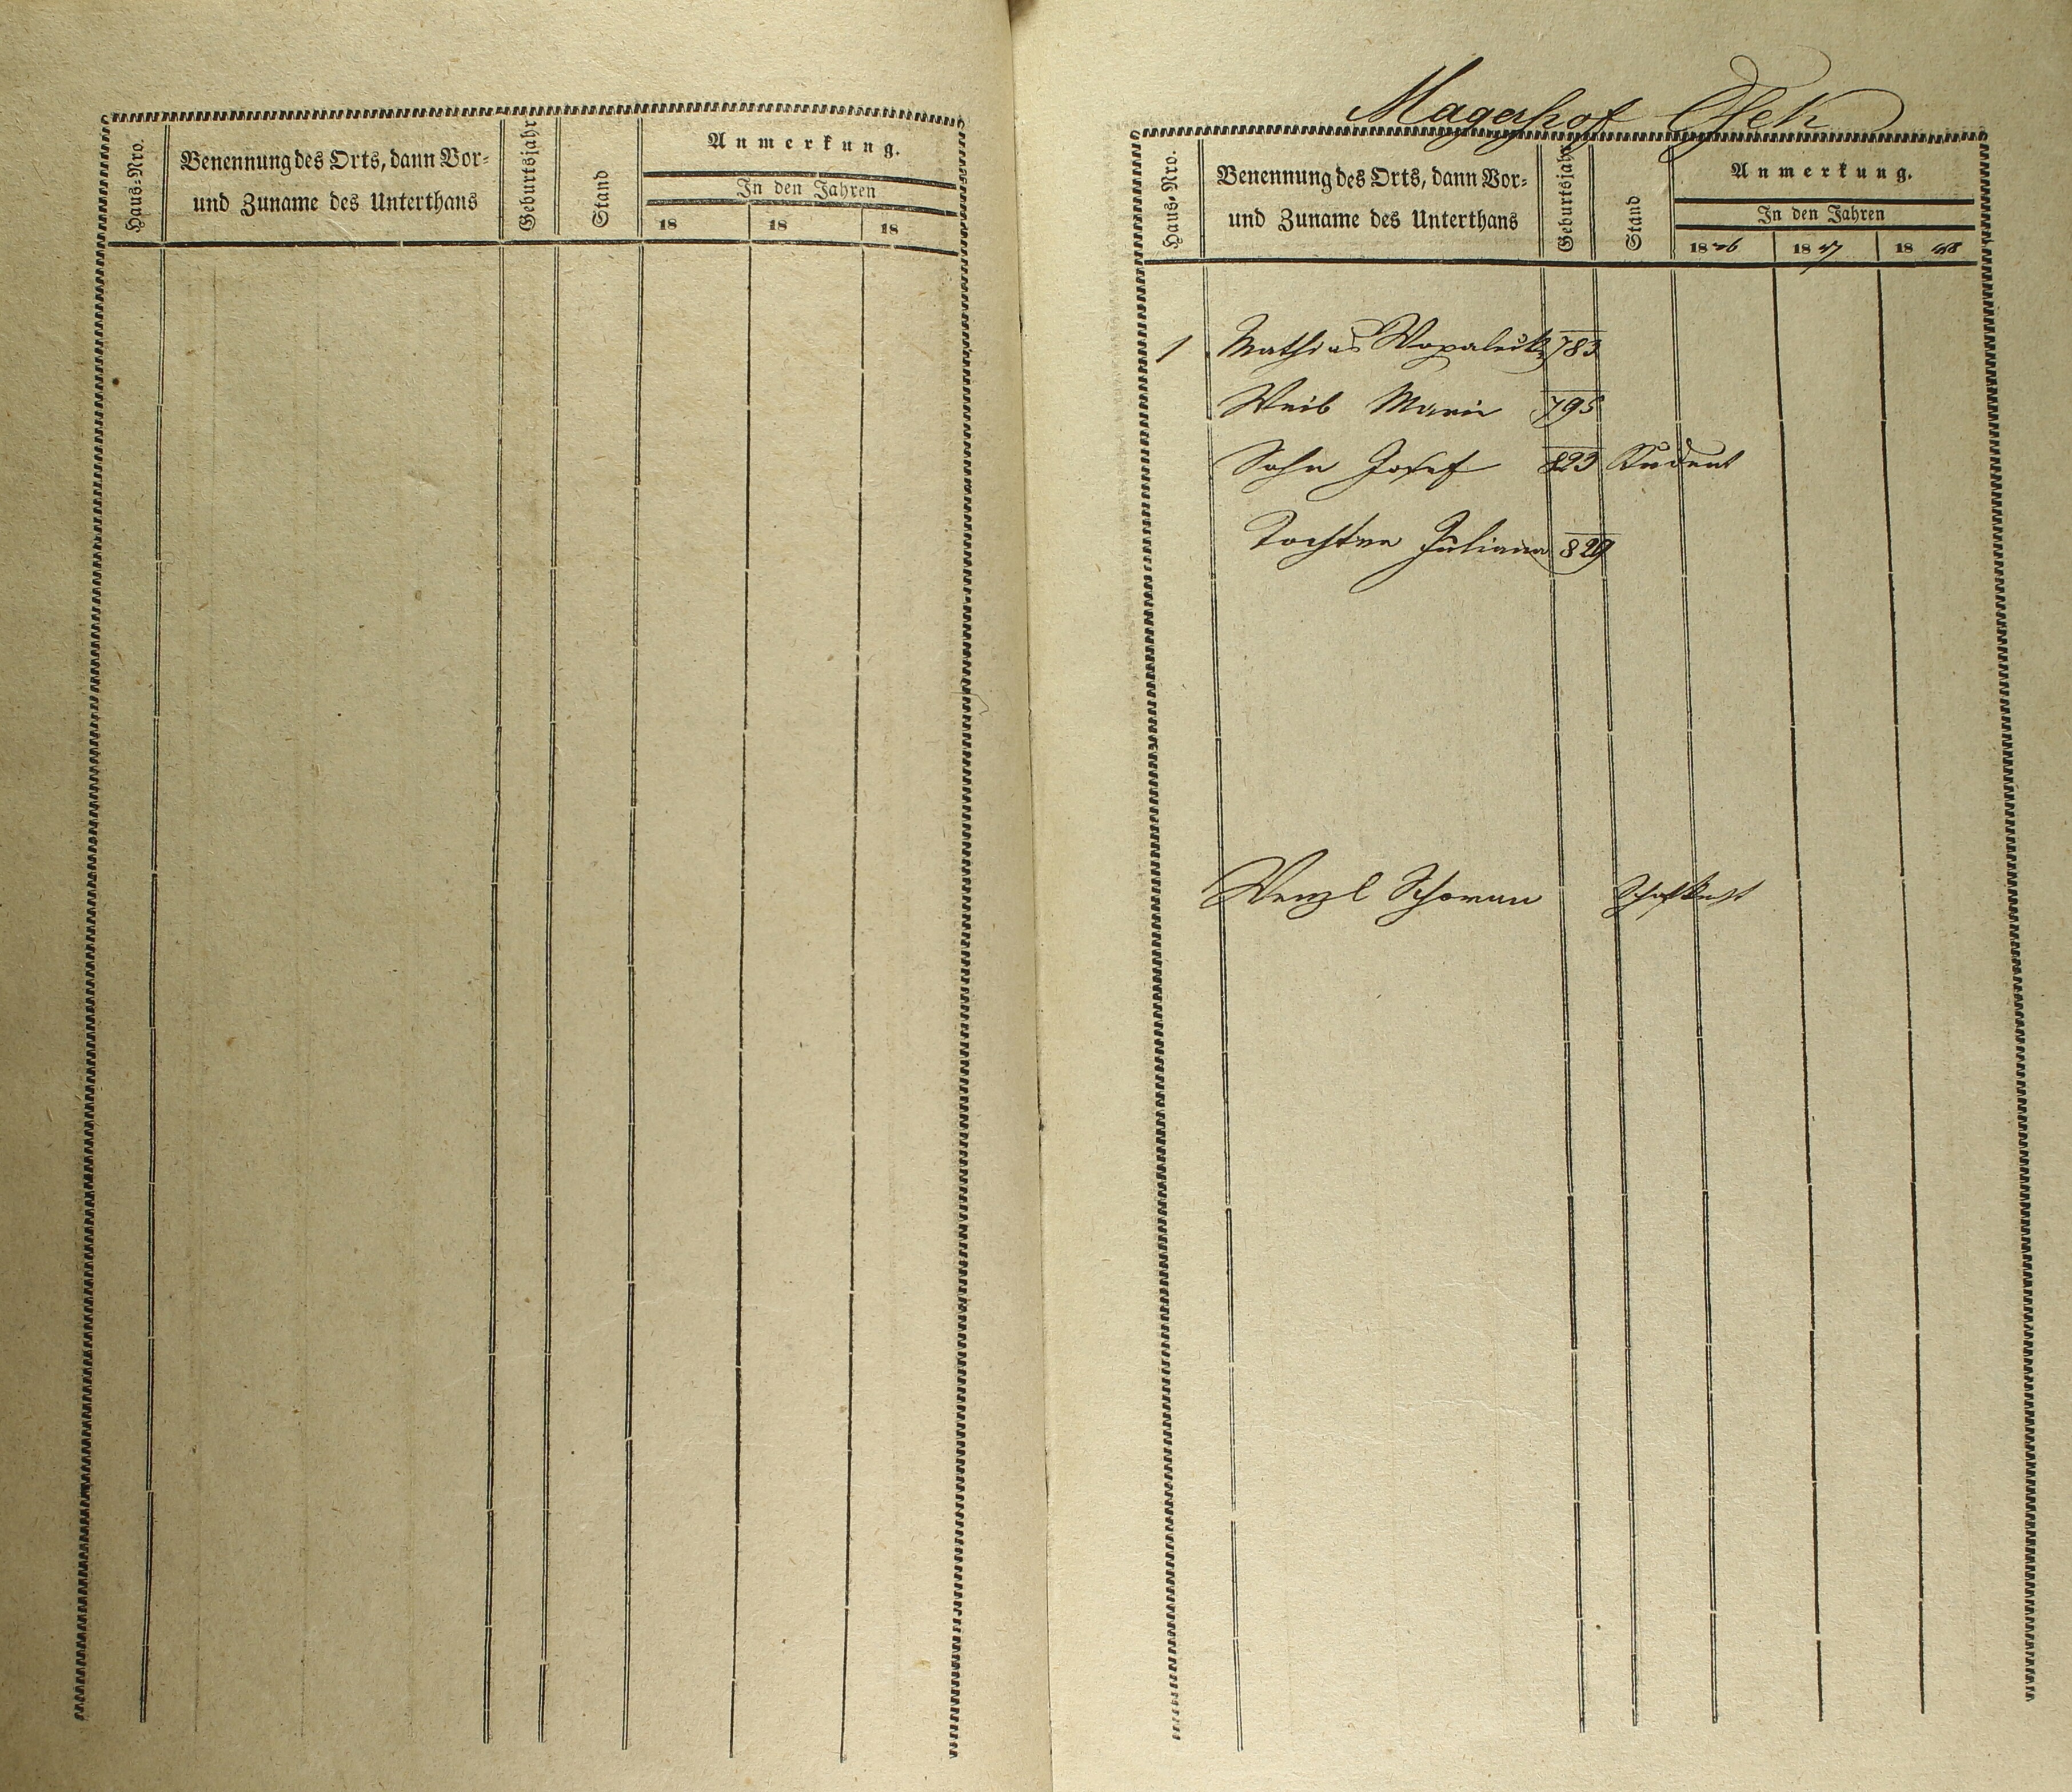 Haus=Nro.
Benennung des Orts, dann Vor=
und Zuname des Unterthans
Geburtsjahr
Stand
Anmerkung.
In den Jahren
18 18 18
Magerhof
Haus=Nro.
Benennung des Orts, dann Vor=
und Zuname des Unterthans
Geburtsjahr
Stand
Anmerkung.
In den Jahren
1846 1847 1848
1 Mathias 783
Weib Marie 795
Sohn Josef 823 Student
Tochter Juliana 829
Wenzl